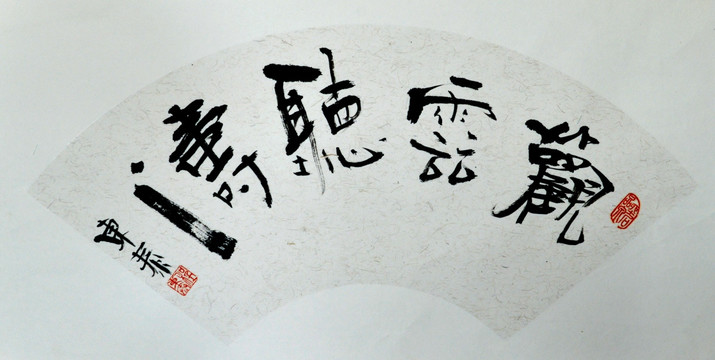 觀雲聽濤